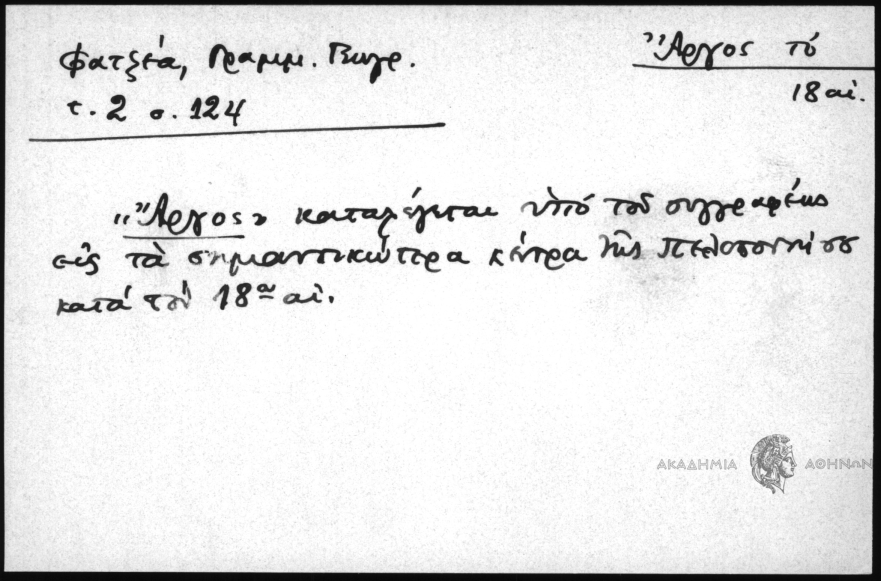 Φατζέα, Γραμμ. Γεωγρ.
τ. 2 σ. 124
Ἄργος τό
18 αἰ.
«Ἄργος» καταλέγεται ὑπό τοῦ συγγραφέως
εἰς τὰ σημαντικώτερα κέντρα τῆς Πελοποννήσου
κατά τόν 18ον αἰ.
ΑΚΑΔΗΜΙΑ ΑΘΗΝΩΝ